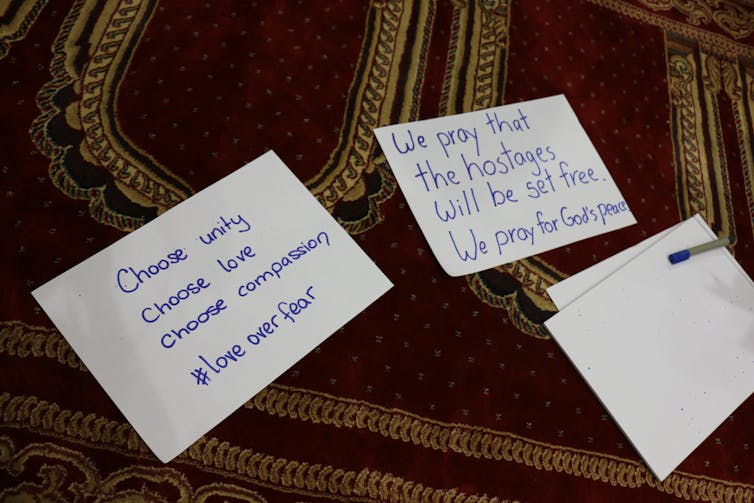 Choose unity
Choose love
choose compassion
#love over fear
We pray that
the hostages
will be set free.
We pray for God's peace